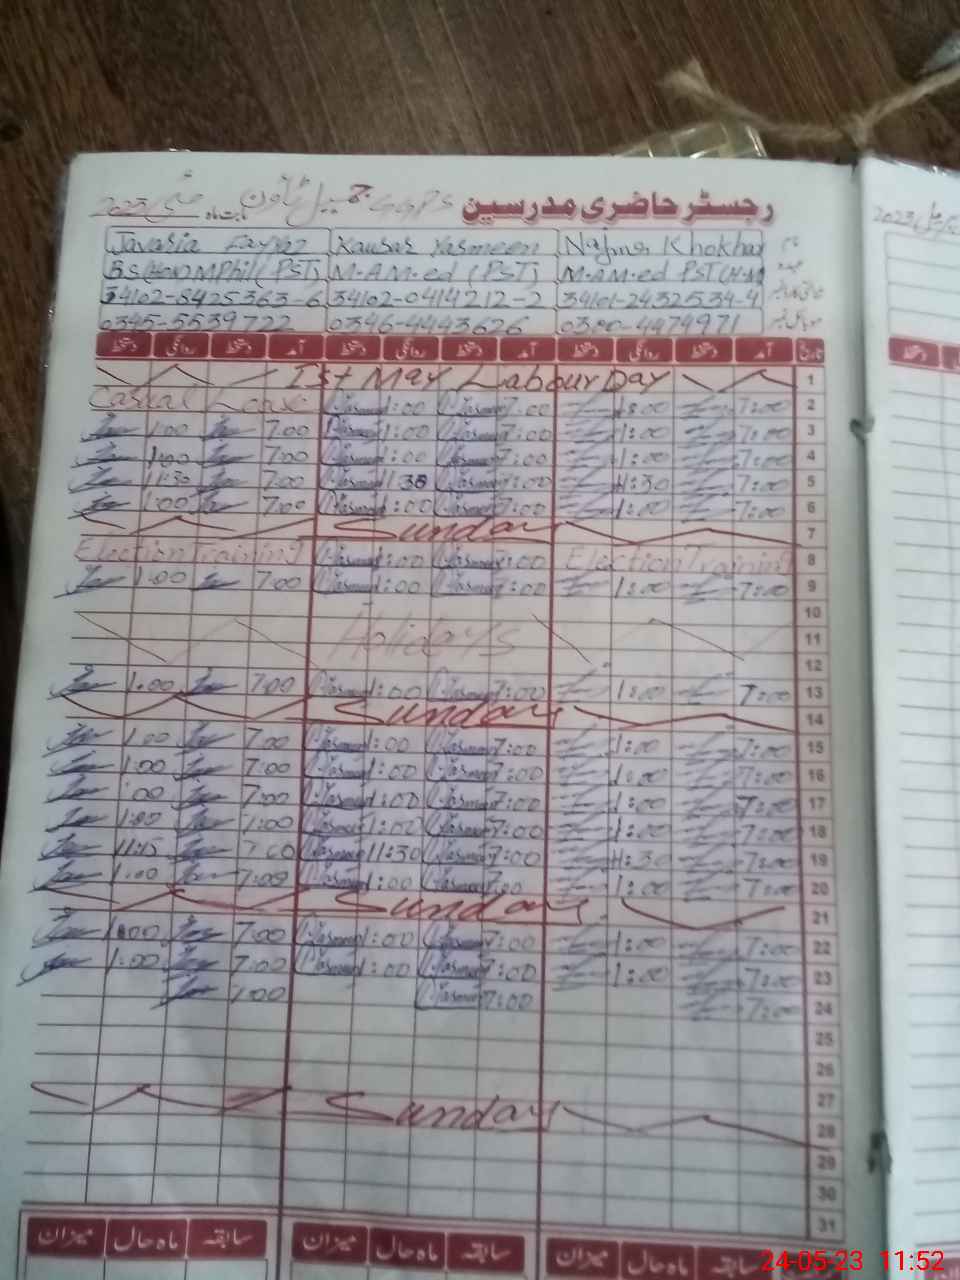 رجسٹر حاضری مدرسین GGPS جمیل ٹاؤن بابت ماہ مئی 2023
Javaria Fayyaz Kausar Yasmeen Najma Khokhar
BS(Hon) MPhil (PST) M.A M.ed (PST) M.A M.ed PST (H.M)
34102-8425363-6 34102-0414212-2 34101-2432534-4
0345-5539722 0346-4443626 0300-4474971
تاریخ آمد دستخط روانگی دستخط آمد دستخط روانگی دستخط آمد دستخط روانگی دستخط
1st May Labour Day 1
Casual Leave Yasmeen 1:00 Yasmeen 7:00 1:00 7:00 2
1:00 7:00 Yasmeen 1:00 Yasmeen 7:00 1:00 7:00 3
1:00 7:00 Yasmeen 1:00 Yasmeen 7:00 1:00 7:00 4
11:30 7:00 Yasmeen 11:30 Yasmeen 7:00 11:30 7:00 5
1:00 7:00 Yasmeen 1:00 Yasmeen 7:00 1:00 7:00 6
Sunday 7
Election Training Yasmeen 1:00 Yasmeen 7:00 Election Training 8
1:00 7:00 Yasmeen 1:00 Yasmeen 7:00 1:00 7:00 9
10
Holidays 11
12
1:00 7:00 Yasmeen 1:00 Yasmeen 7:00 1:00 7:00 13
Sunday 14
1:00 7:00 Yasmeen 1:00 Yasmeen 7:00 1:00 7:00 15
1:00 7:00 Yasmeen 1:00 Yasmeen 7:00 1:00 7:00 16
1:00 7:00 Yasmeen 1:00 Yasmeen 7:00 1:00 7:00 17
1:00 1:00 Yasmeen 1:00 Yasmeen 7:00 1:00 7:00 18
11:15 7:00 Yasmeen 11:30 Yasmeen 7:00 11:30 7:00 19
1:00 7:00 Yasmeen 1:00 Yasmeen 7:00 1:00 7:00 20
Sunday 21
1:00 7:00 Yasmeen 1:00 Yasmeen 7:00 1:00 7:00 22
1:00 7:00 Yasmeen 1:00 Yasmeen 7:00 1:00 7:00 23
7:00 Yasmeen 7:00 7:00 24
25
26
27
Sunday 28
29
30
31
سابقہ ماہ حال میزان سابقہ ماہ حال میزان سابقہ ماہ حال میزان
24-05-23 11:52